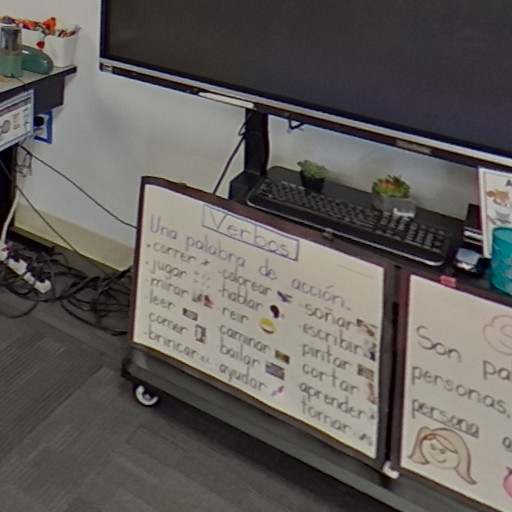 Verbos
Una palabra de acción.
·correr
·jugar
·mirar
·leer
·comer
·brincar
·colorear
·hablar
·reir
·caminar
·bailar
·ayudar
·soñar
·escribir
·pintar
·cortar
·aprender
·tomar
Son pa
personas,
persona